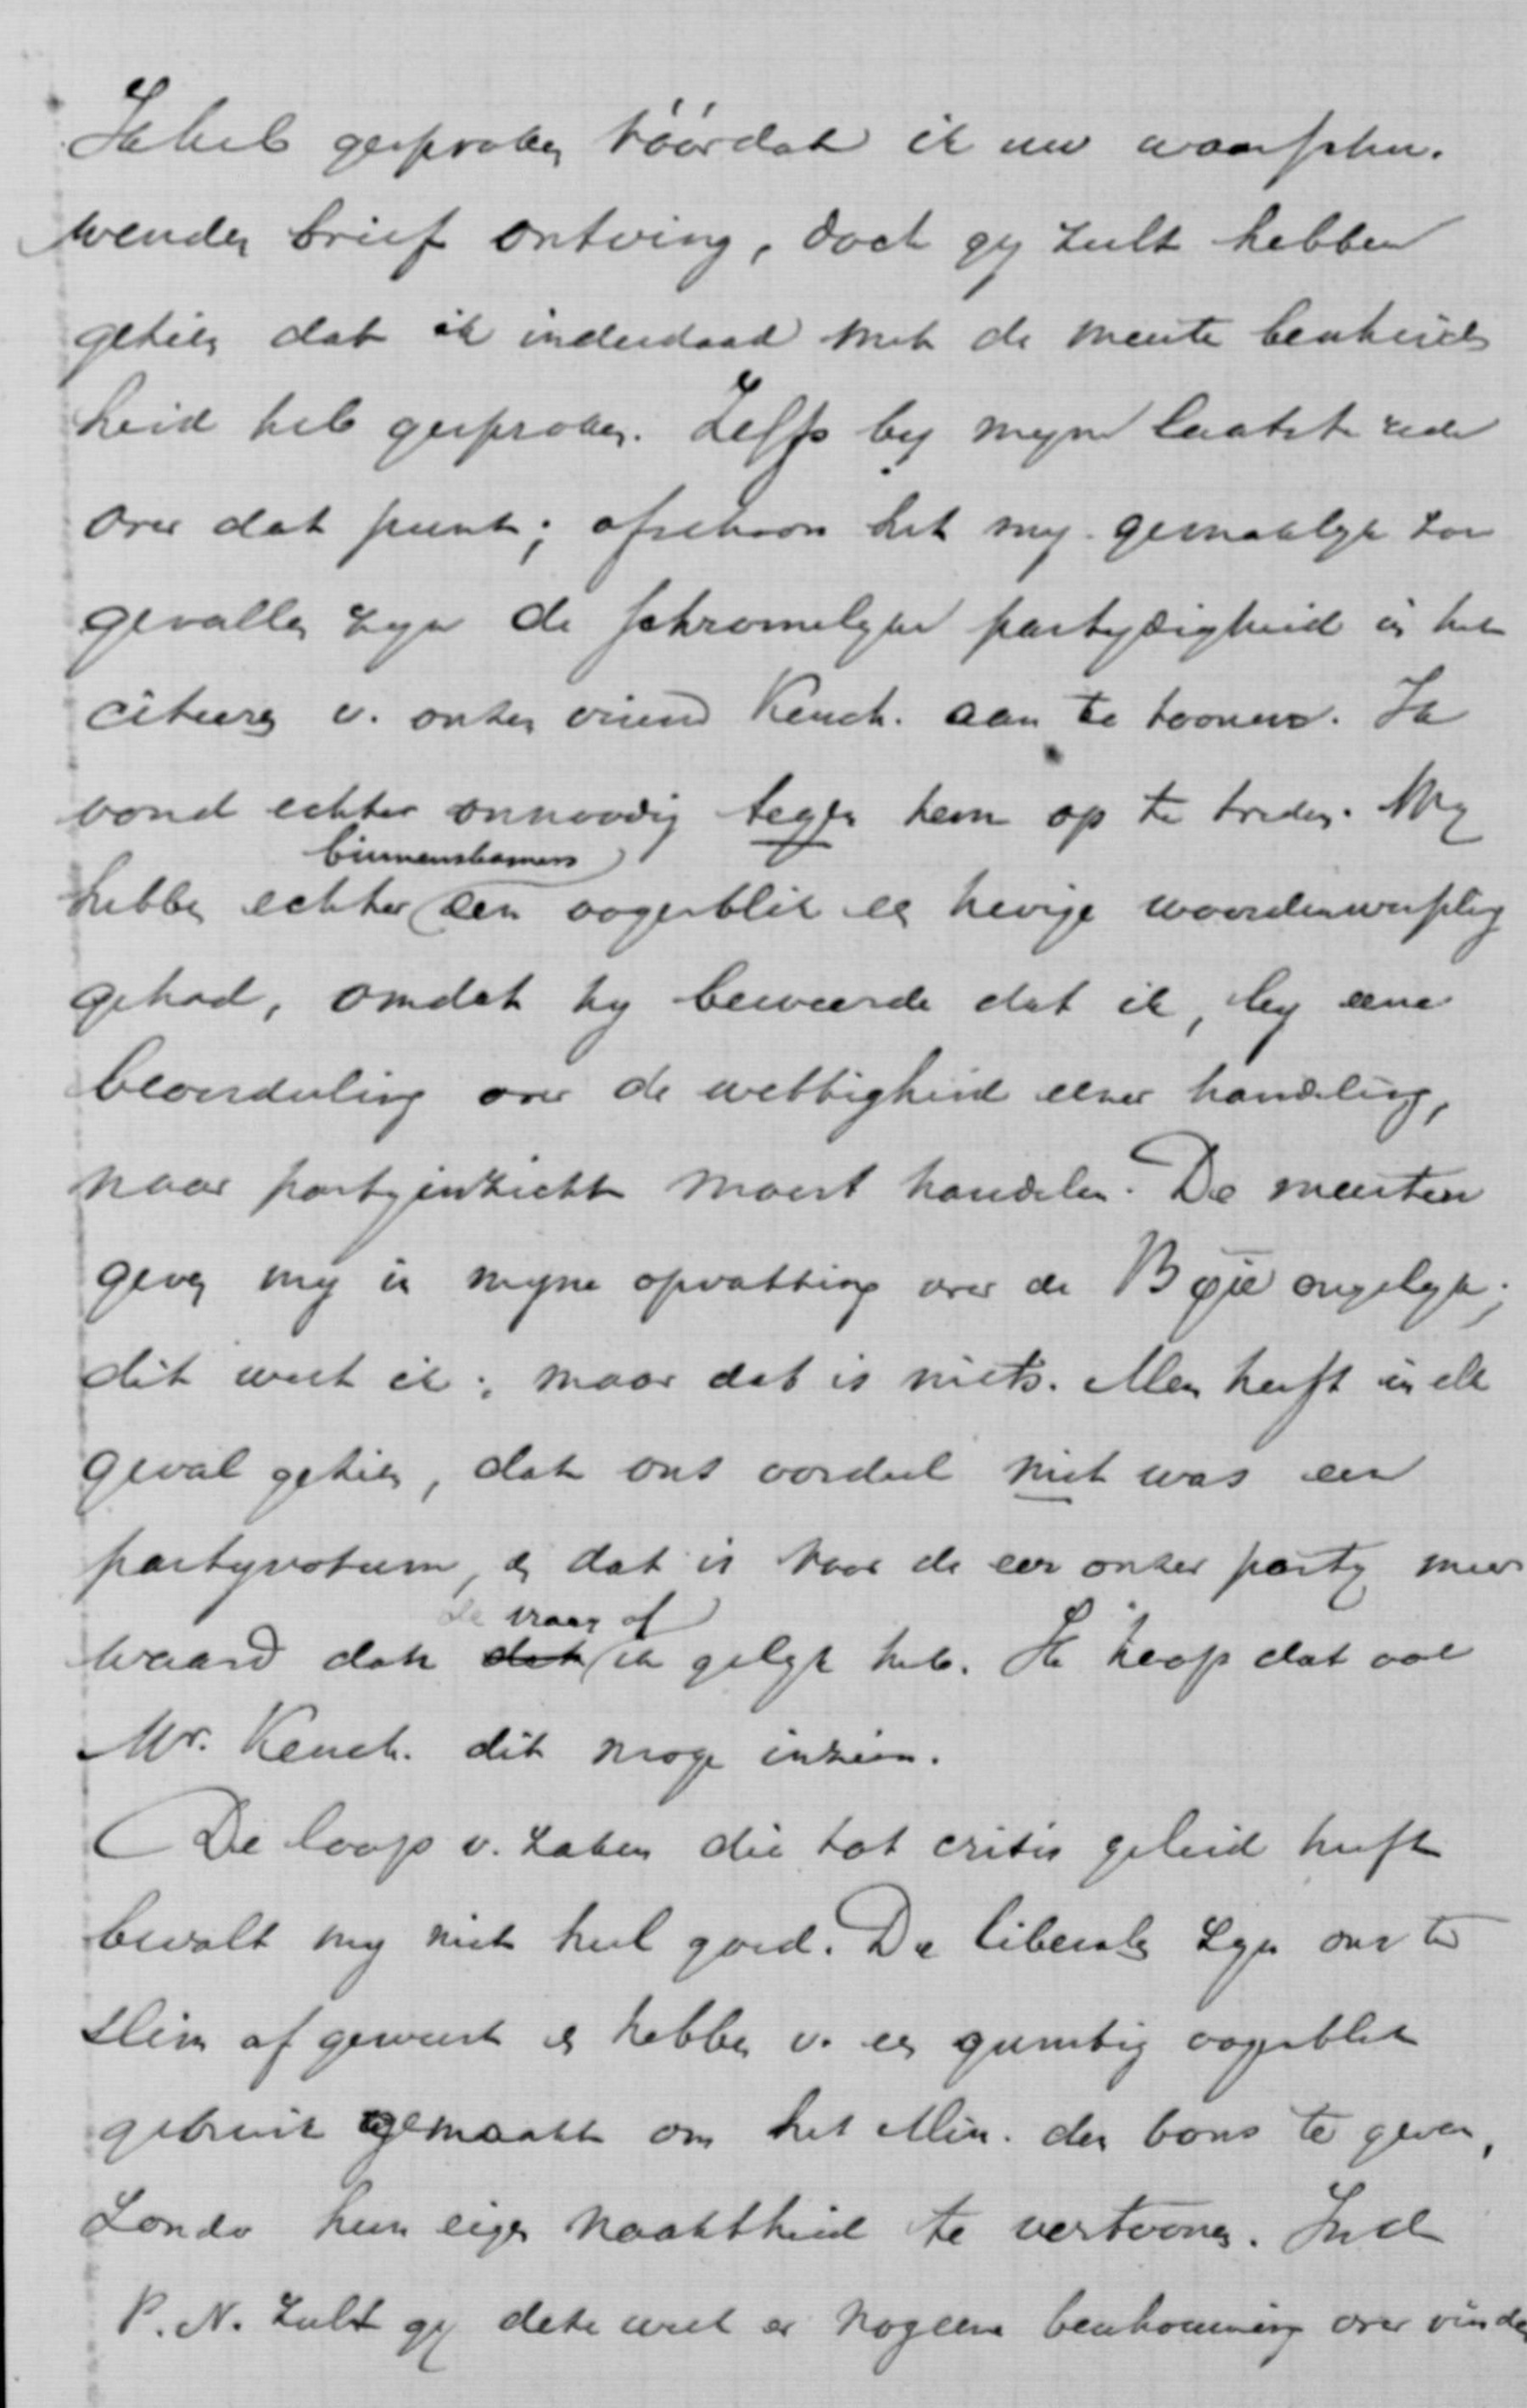 Ik heb gesproken vóórdat ik uw waarschu-
wenden brief ontving, doch gij zult hebben
gezien dat ik inderdaad met de meeste bezadigd
heid heb gesproken. Zelfs bij mijne laatste rede
over dat punt; ofschoon het mij gemakkelijk zou
gevallen zijn de schromelijke partijdigheid in het
citeeren v. onzen vriend Keuch. aan te toonen. Ik
vond echter onnoodig tegen hem op te treden. Wij
hebben echter binnenskamers een oogenblik een hevige woordenwisseling
gehad, omdat hij beweerde dat ik, bij eene
beoordeeling over de wettigheid eener handeling,
naar partijinzichten moest handelen. De meesten
geven mij in mijne opvatting over de ongelijk;
dit weet ik; maar dat is niets. Men heeft in elk
geval gezien, dat ons oordeel niet was een
partijvotum, en dat is voor de eer onzer partij meer
waard dan dat de vraag of ik gelijk heb. Ik hoop dat ook
Mr. Keuch. dit moge inzien.
De loop v. zaken die tot crisis geleid heeft
bevalt mij niet heel goed. De liberalen zijn ons te
slim af geweest en hebben v. een gunstig oogenblik
gebruik gemaakt om het Min. den bons te geven,
zonder hun eigen naaktheid te vertoonen. In de
P. N. zult gij deze week er nog eene beschouwing over vinden